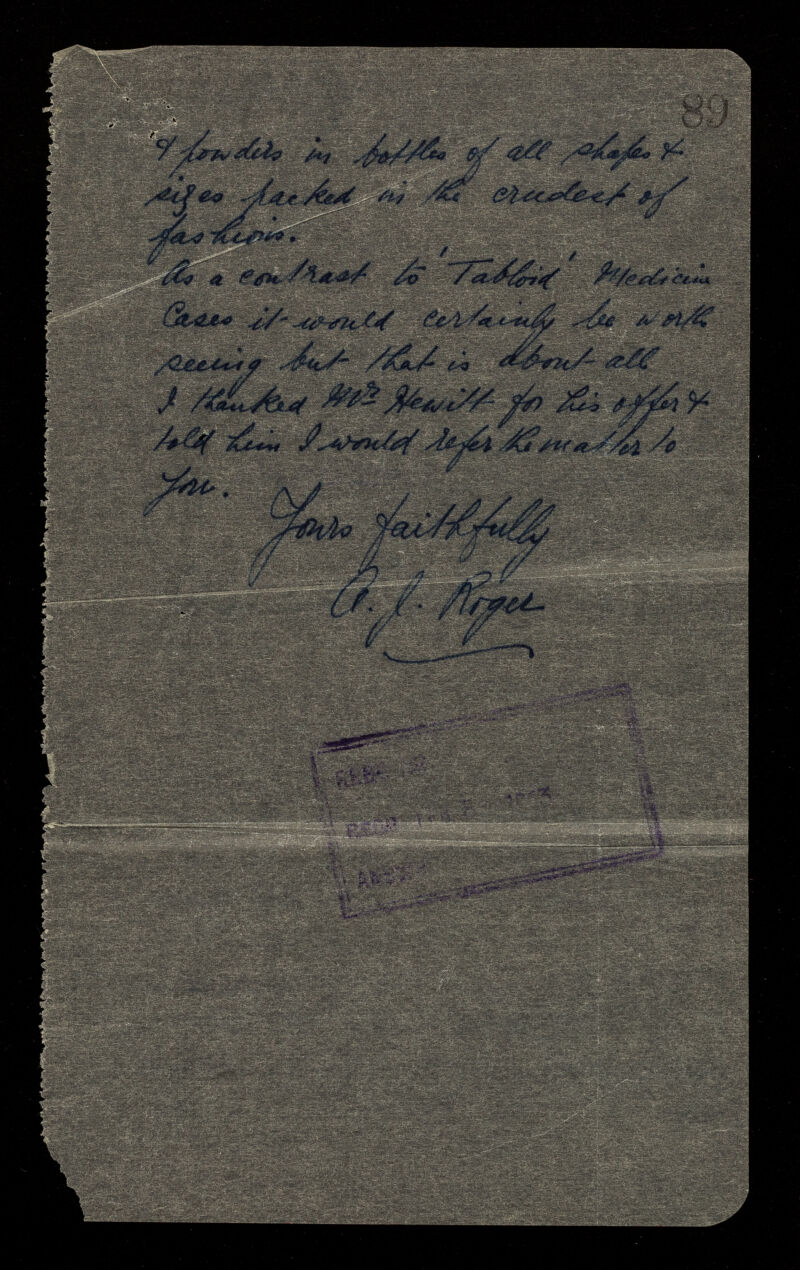 89
& powders in bottles of all shapes &
sizes packed in the crudest of
fashions.
As a contrast to 'Tabloid' Medicine
Cases it would certainly be worth
seeing but that is about all
I thanked Mr Hewitt for his offer &
told him I would refer the matter to
you.
Yours faithfully
A. J. Roger